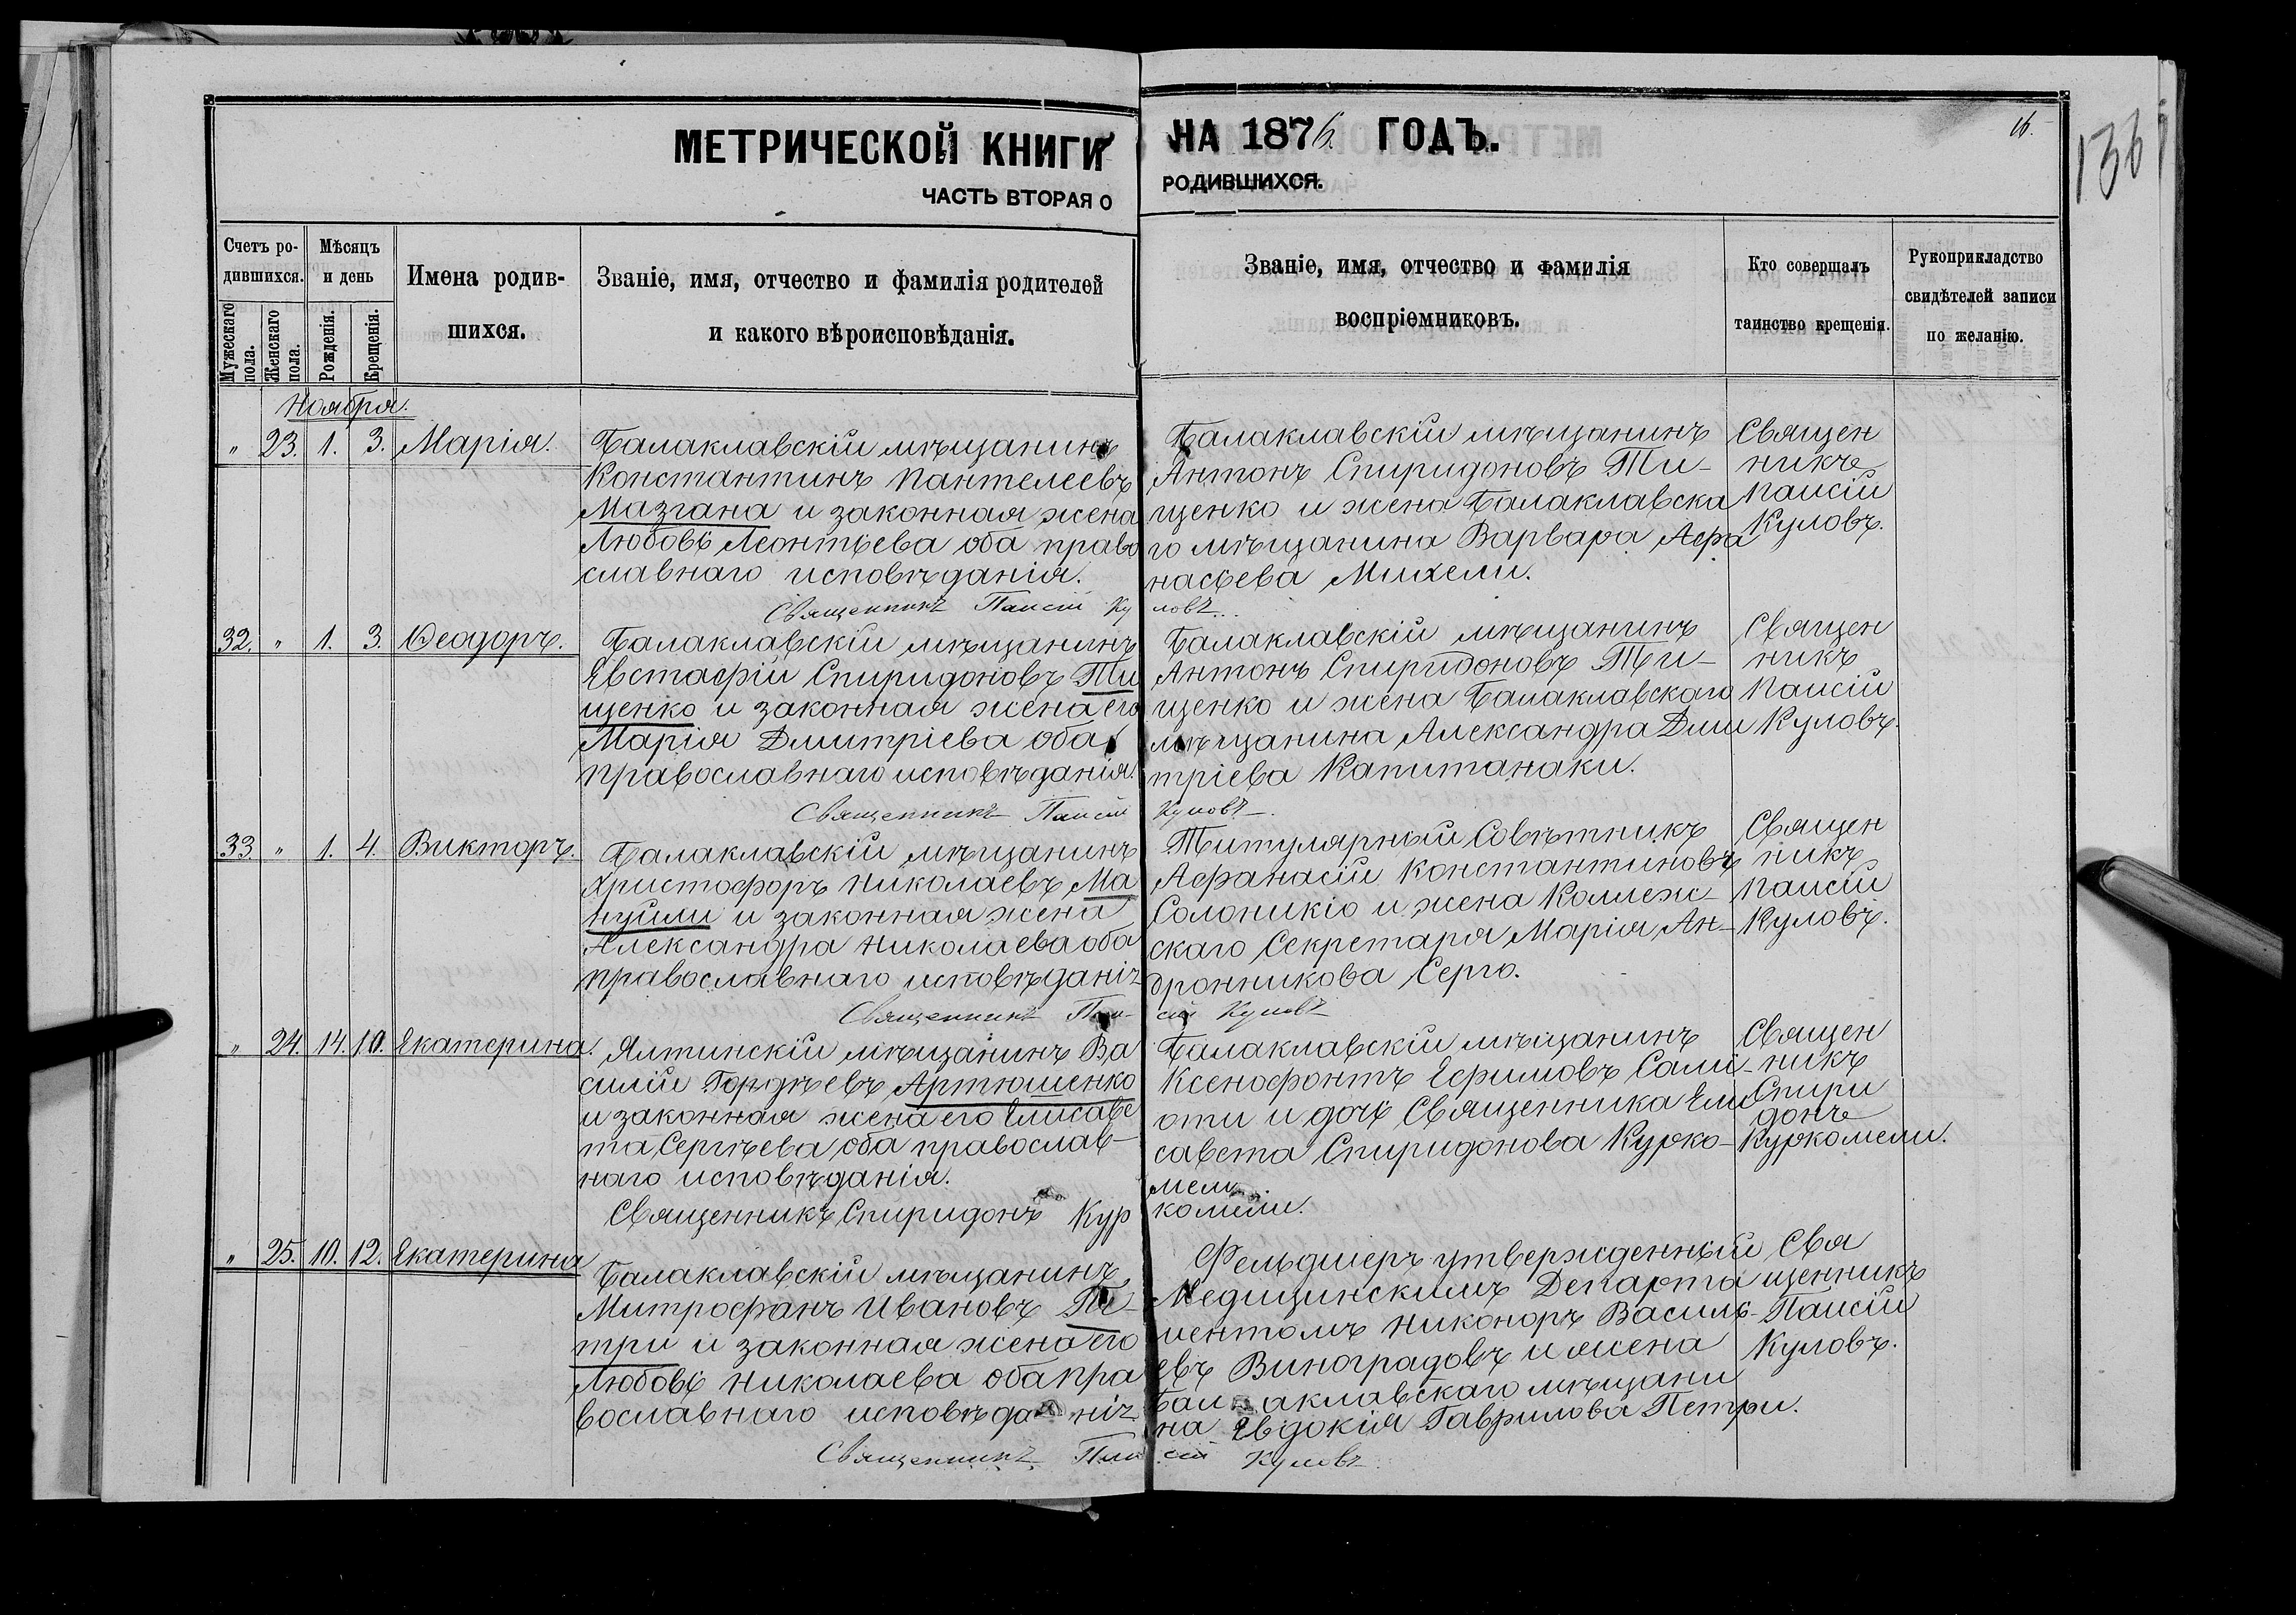 МЕТРИЧЕСКОЙ КНИГИ
ЧАСТЬ ВТОРАЯ О
НА 1876 ГОДЪ.
РОДИВШИХСЯ.
16.
136
Счетъ ро-
дившихся.
Мужескаго
пола.
Женскаго
пола.
Мѣсяцъ
и день
Рожденія.
Крещенія.
Имена родив-
шихся.
Званіе, имя, отчество и фамилія родителей
и какого вѣроисповѣданія.
Званіе, имя, отчество и фамилія
воспріемниковъ.
Кто совершалъ
таинство крещенія.
Рукоприкладство
свидѣтелей записи
по желанію.
Ноября.
" 23. 1. 3. Марія.
Балаклавскій мѣщанинъ
Константинъ Пантелеевъ
Мазгана и законная жена
Любовь Леонтьева оба право
славнаго исповѣданія.
Балаклавскій мѣщанинъ
Антонъ Спиридоновъ Ти-
щенко и жена Балаклавска
го мѣщанина Варвара Афа
насьева Михели.
Священ
никъ
Паисій
Куловъ.
Священникъ Паисій Ку ловъ
32. " 1. 3. Ѳеодоръ.
Балаклавскій мѣщанинъ
Евстафій Спиридоновъ Ти
щенко и законная жена его
Марія Дмитріева оба
православнаго исповѣданія.
Балаклавскій мѣщанинъ
Антонъ Спиридоновъ Ти-
щенко и жена Балаклавскаго
мѣщанина Александра Дми
тріева Капитанаки.
Священ
никъ
Паисій
Куловъ.
Священникъ Паисій Куловъ
33. " 1. 4. Викторъ.
Балаклавскій мѣщанинъ
Христофоръ Николаевъ Ма
нуйли и законная жена
Александра Николаева оба
православнаго исповѣданія
Титулярный Совѣтникъ
Афанасій Константиновъ
Солоникіо и жена Коллеж-
скаго Секретаря Марія Ан-
дронникова Серго.
Священ
никъ
Паисій
Куловъ.
Священникъ Паи- сій Куловъ
" 24. 14. 10. Екатерина.
Ялтинскій мѣщанинъ Ва
силій Гордѣевъ Артюшенко
и законная жена его Елисаве
та Сергѣева оба православ-
наго исповѣданія.
Балаклавскій мѣщанинъ
Ксенофонтъ Ефимовъ Сали-
оти и дочь Священника Ели
савета Спиридонова Курко-
мели
Священ
никъ
Спири
донъ
Куркомели.
Священникъ Спиридонъ Кур комели.
" 25. 10. 12. Екатерина
Балаклавскій мѣщанинъ
Митрофанъ Ивановъ Пе-
три и законная жена его
Любовь Николаева оба пра
вославнаго исповѣданія
Фельдшеръ утвержденный
Медицинскимъ Департа
ментомъ Никоноръ Василь-
евъ Виноградовъ и жена
Балаклавскаго мѣщани
на Евдокія Гаврилова Петри.
Свя
щенникъ
Паисій
Куловъ.
Священникъ Паи сій Куловъ